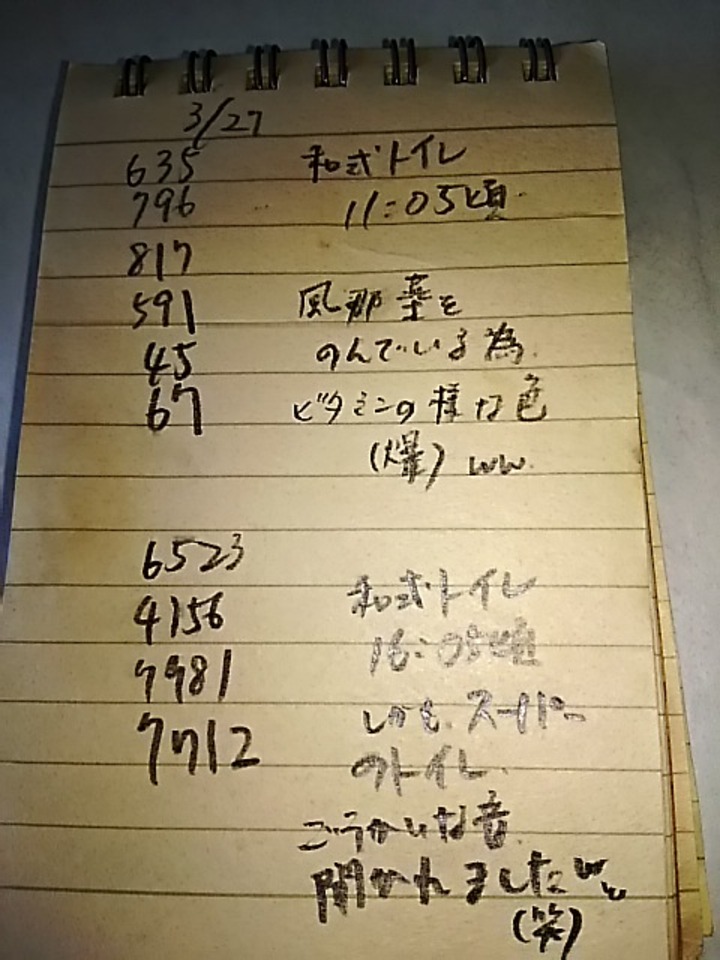 3/27
635 和式トイレ
796 11:05頃
817
591 風邪薬を
45 のんでいる為
67 ビタミンの様な色
(爆) ww
6523
4156 和式トイレ
7981 16:05頃
7712 しかも、スーパー
のトイレ
ごうかいな音
聞かれましたww
(笑)